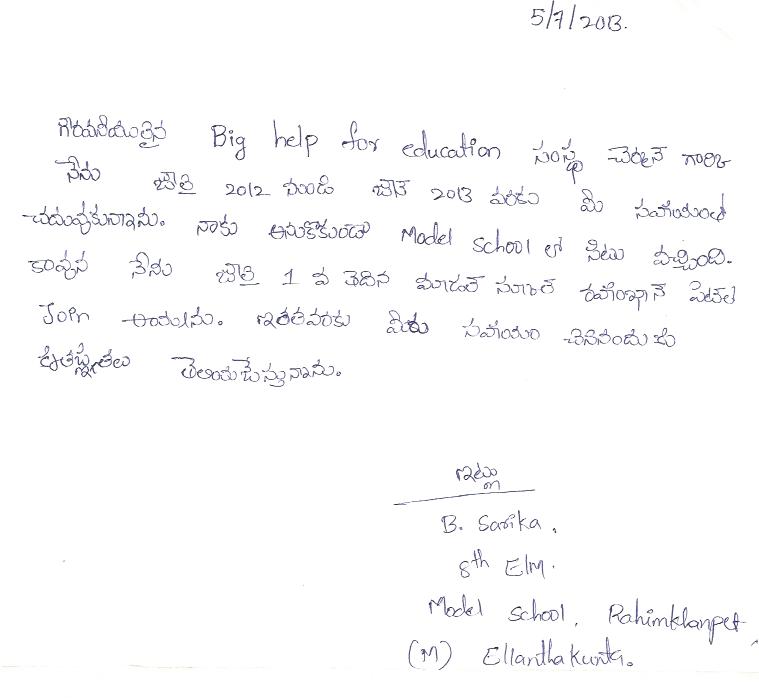 5/7/2013.
గౌరవనీయులైన Big help for education సంస్థ చైర్మెన్ గారికి
నేను జూలై 2012 నుండి జూన్ 2013 వరకు మీ సహాయంతో
చదువుకున్నాను. నాకు అనుకోకుండా Model School లో సీటు వచ్చింది.
కావున నేను జూలై 1 వ తేదిన మోడల్ స్కూల్ రహీంఖాన్ పేటలో
Join అయ్యాను. ఇంతవరకు మీరు సహాయం చేసినందుకు
కృతజ్ఞతలు తెలియజేస్తున్నాను.
ఇట్లు
B. Sarika.
8th E/M.
Model School, Rahimkhanpet,
(M) Ellanthakunta.